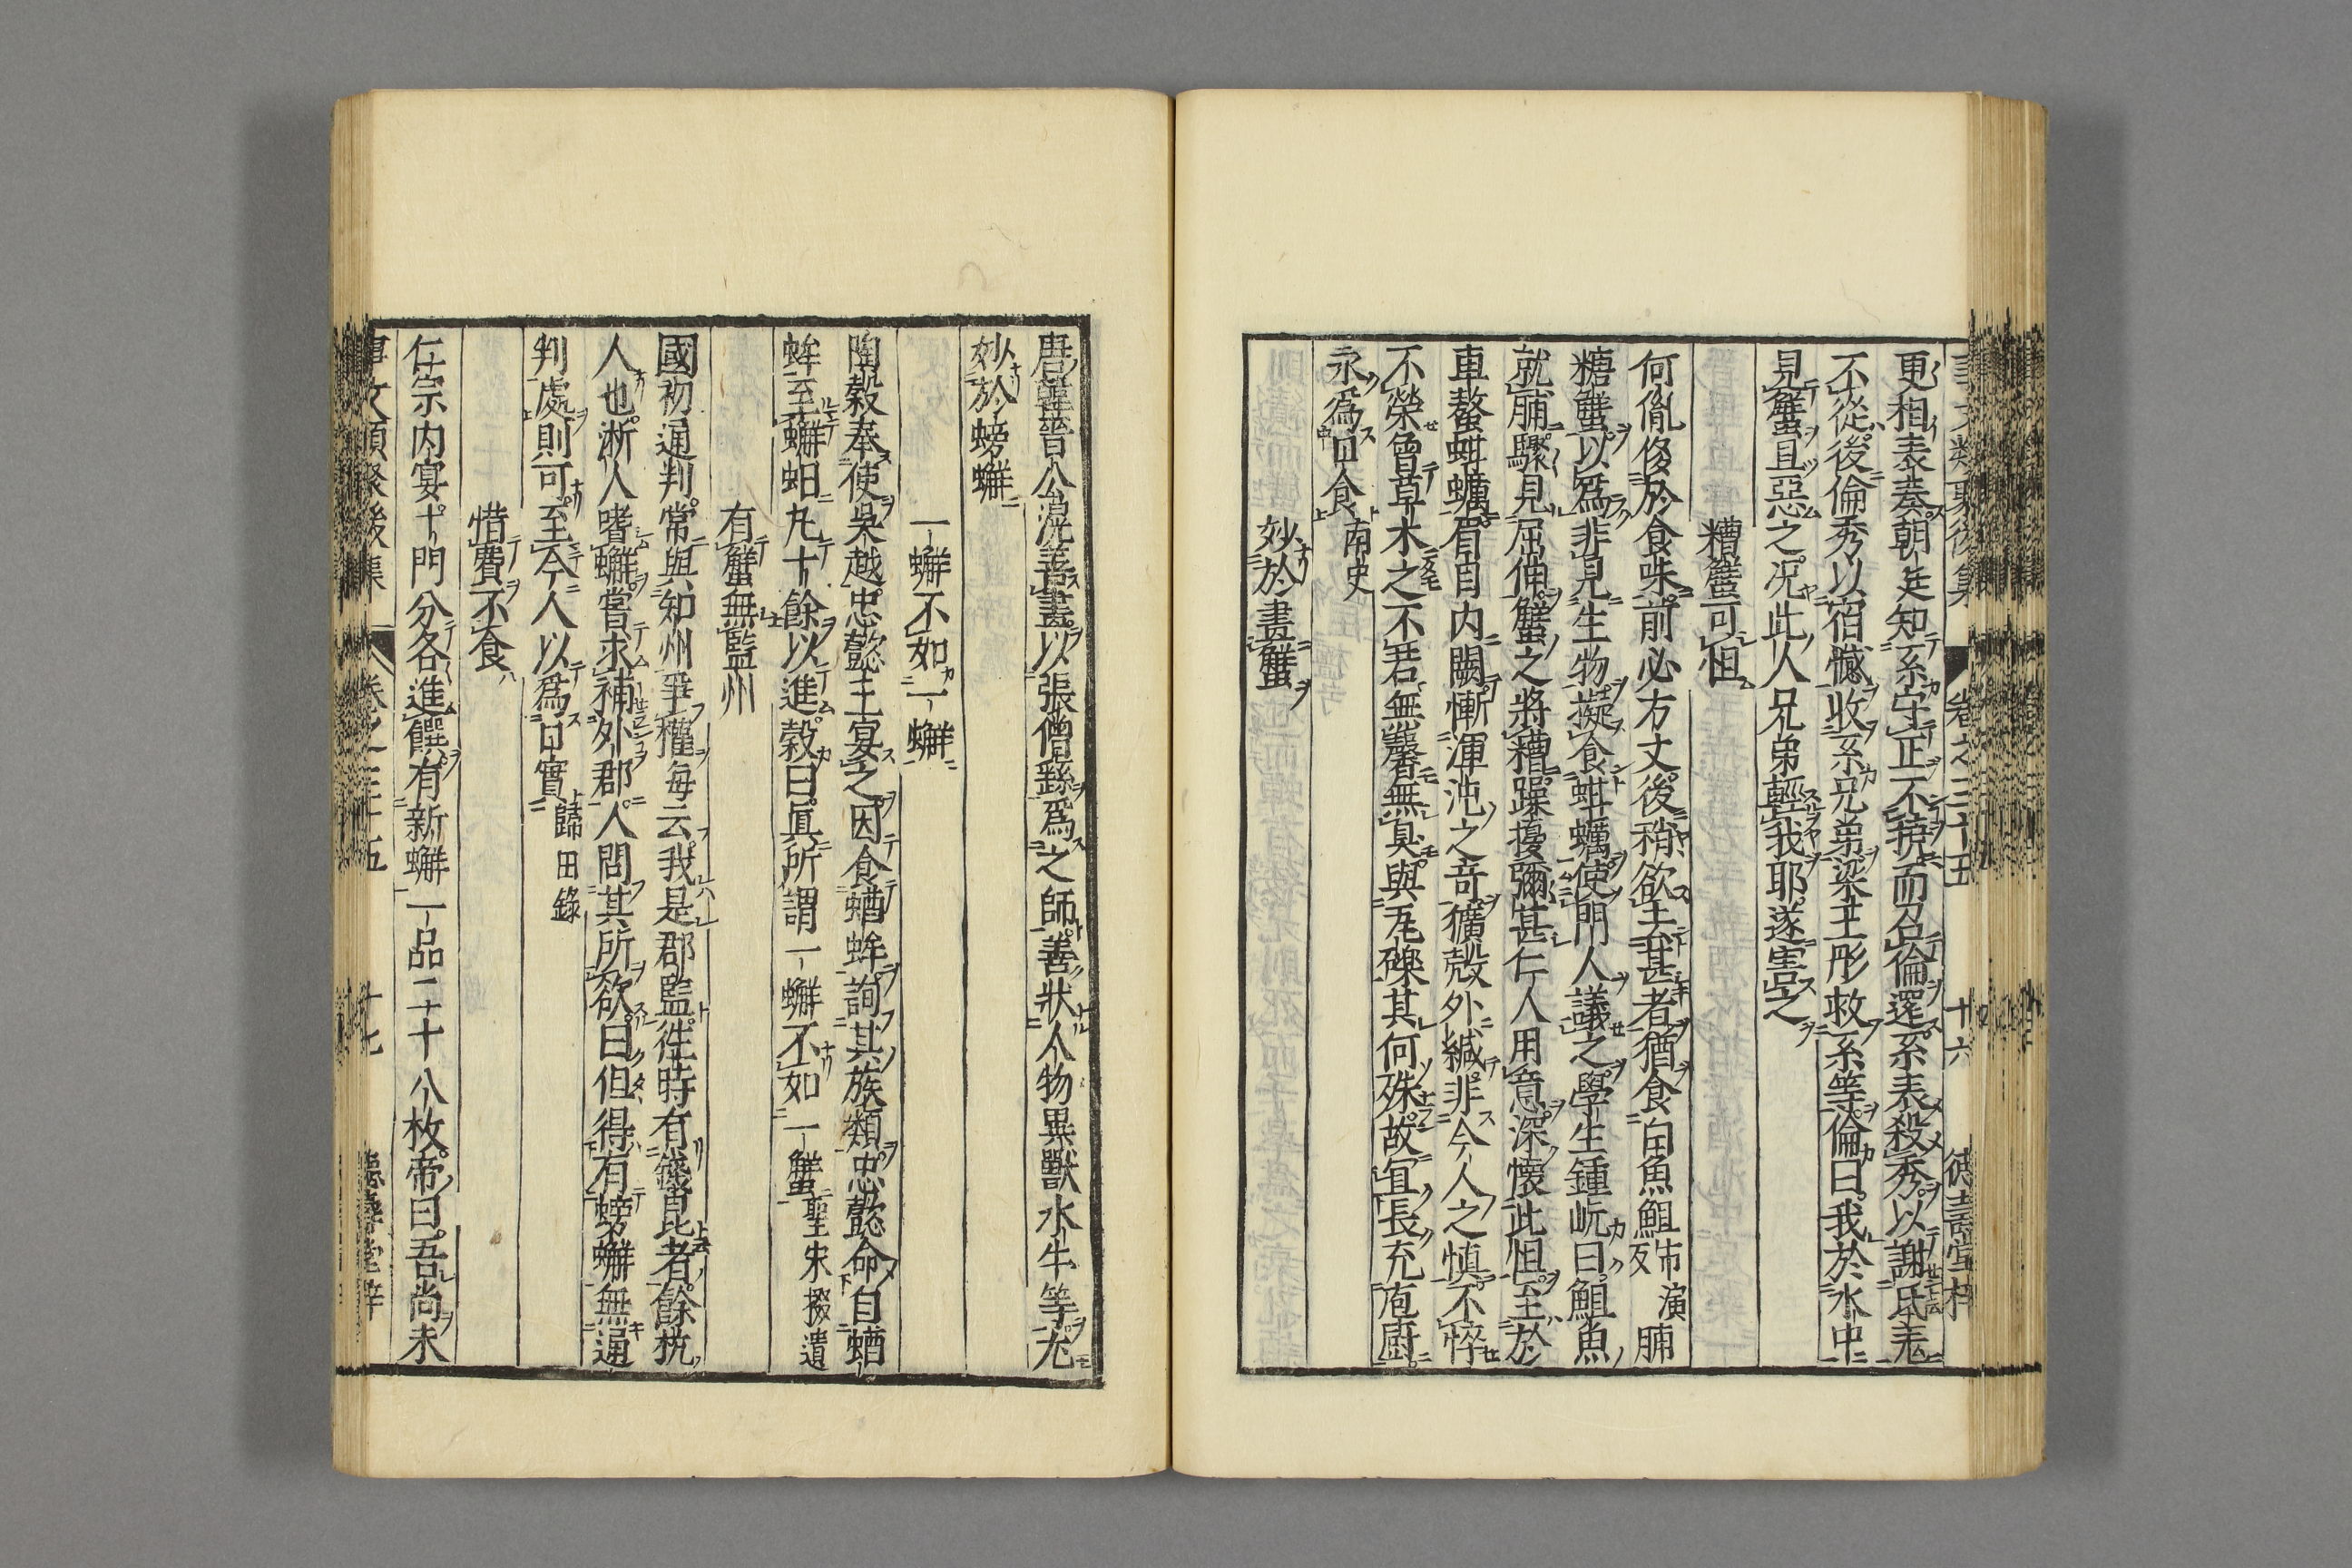 事文類聚後集 卷之三十五 十六 德壽堂梓
更相表奏朝廷知糸守正不撓而召倫還糸表殺秀以謝氐羌
不從後倫秀以宿憾收糸兄弟梁王肜救糸等倫曰我於水中
見蟹且惡之况此人兄弟輕我耶遂害之
糟蟹可怛
何胤侈於食味前必方丈後稍欲去甚者猶食白魚䱉市演反脯
糖蟹以爲非見生物擬食蚶蠣使門人議之學生鍾岏曰䱉魚
就脯驟見屈伸蟹之將糟躁擾彌甚仁人用意深懷此怛至於
車螯蚶蠣眉目内闕慚渾沌之奇獷殻外緘非今人之慎不悴
不榮曾草木之不若無馨無臭與瓦礫其何殊故宜長充庖廚
永爲口食 南史
妙於畫蟹
唐韓晉公滉善畫以張僧繇爲之師善狀人物異獸水牛等尤
妙於螃蠏
一蠏不如一蠏
陶穀奉使吳越忠懿王宴之因食蝤蛑詢其族類忠懿命自蝤
蛑至蠏蚏凡十餘以進穀曰眞所謂一蠏不如一蟹 聖宋掇遺
有蟹無監州
國初通判常與知州爭權每云我是郡監徃時有錢昆者餘杭
人也淅人嗜蠏嘗求補外郡人問其所欲曰但得有螃蠏無通
判處則可至今人以爲口實 歸田錄
惜費不食
仁宗内宴十門分各進饌有新蠏一品二十八枚帝曰吾尚未
事文類聚後集 卷之三十五 十七 德壽堂梓